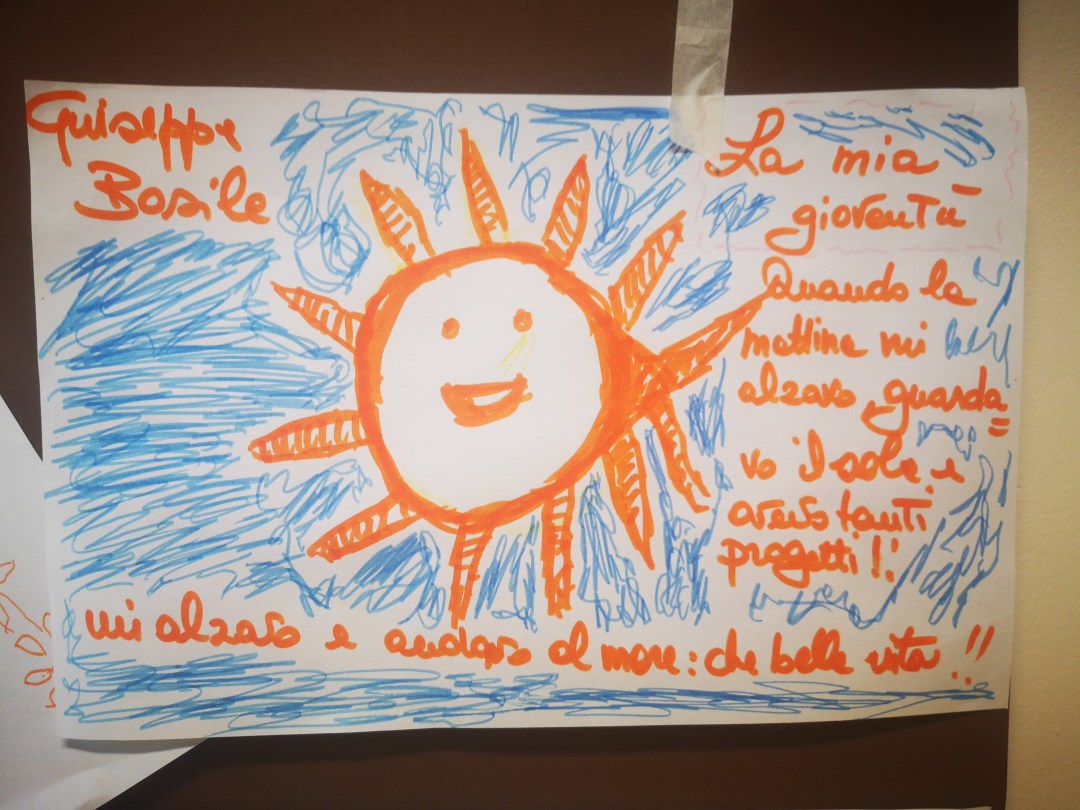 Guiseppe
Basile
La mia
gioventù
Quando la
mattina mi
alzavo, guarda=
vo il sole e
avevo tanti
progetti!!
mi alzavo e andavo al mare: che bella vita!!